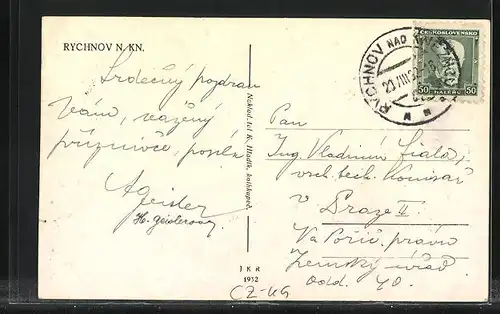 RYCHNOV N. KN.
Srdečný pozdrav
Vám, vážený
příznivče, posílá
A Geisler
H. Geislerová
Naklad. tel K. Hladík, knihkupec
J K R
1932
CZ-UG
RYCHNOV NAD KNĚŽNOU
ČESKOSLOVENSKO
50 HALÉŘŮ 50
Pan
Ing. Vladimír Fiala,
vrch. tech. komisař
v Praze II.
Na Poříč. právu
Zemský úřad
Odd. 40.